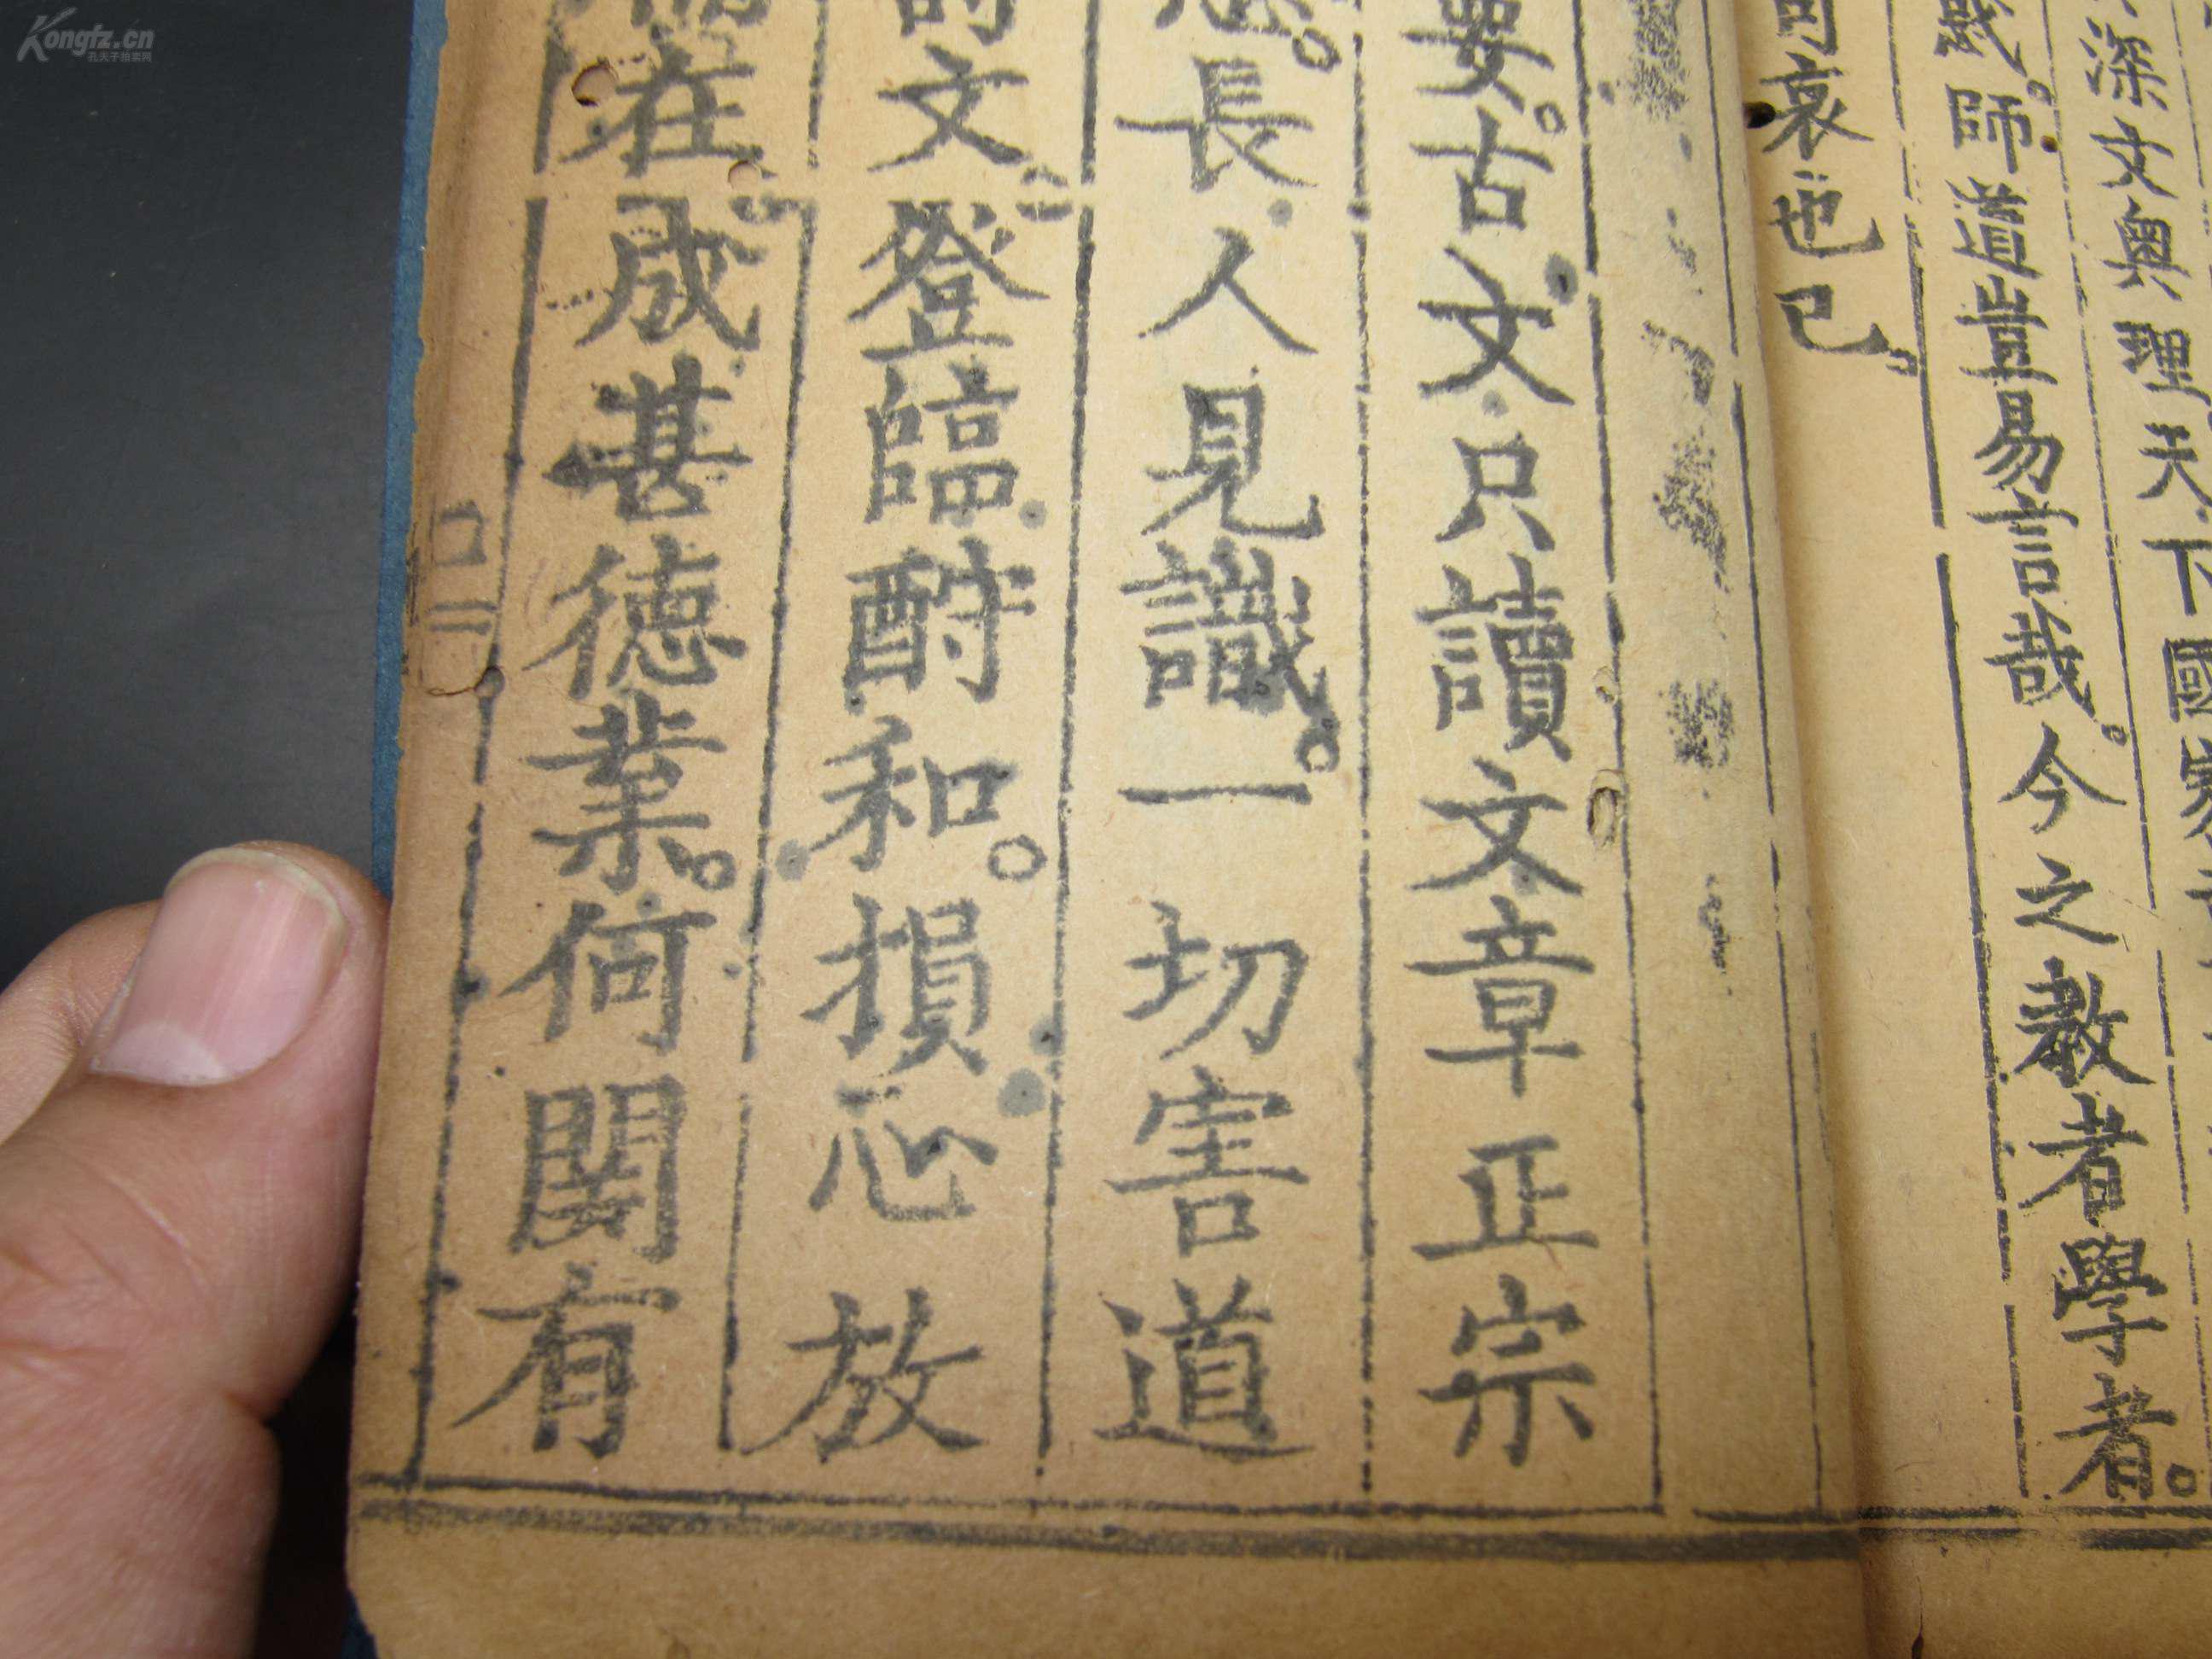 深文奧理天下國家
師道豈易言哉。今之教者學者。
哀也已。
要。古文只讀文章正宗
長人見識。一切害道
文。登臨酧和。損心放
在。成甚德業。何関有
Kongfz.cn
孔夫子拍卖网